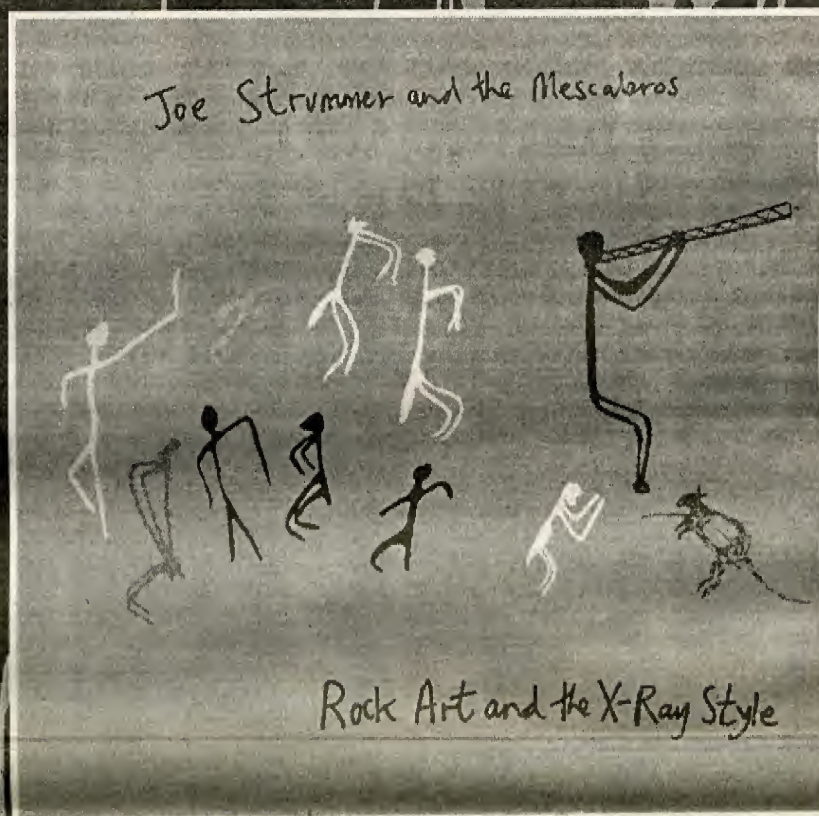 Joe Strummer and the Mescaleros
Rock Art and the X-Ray Style